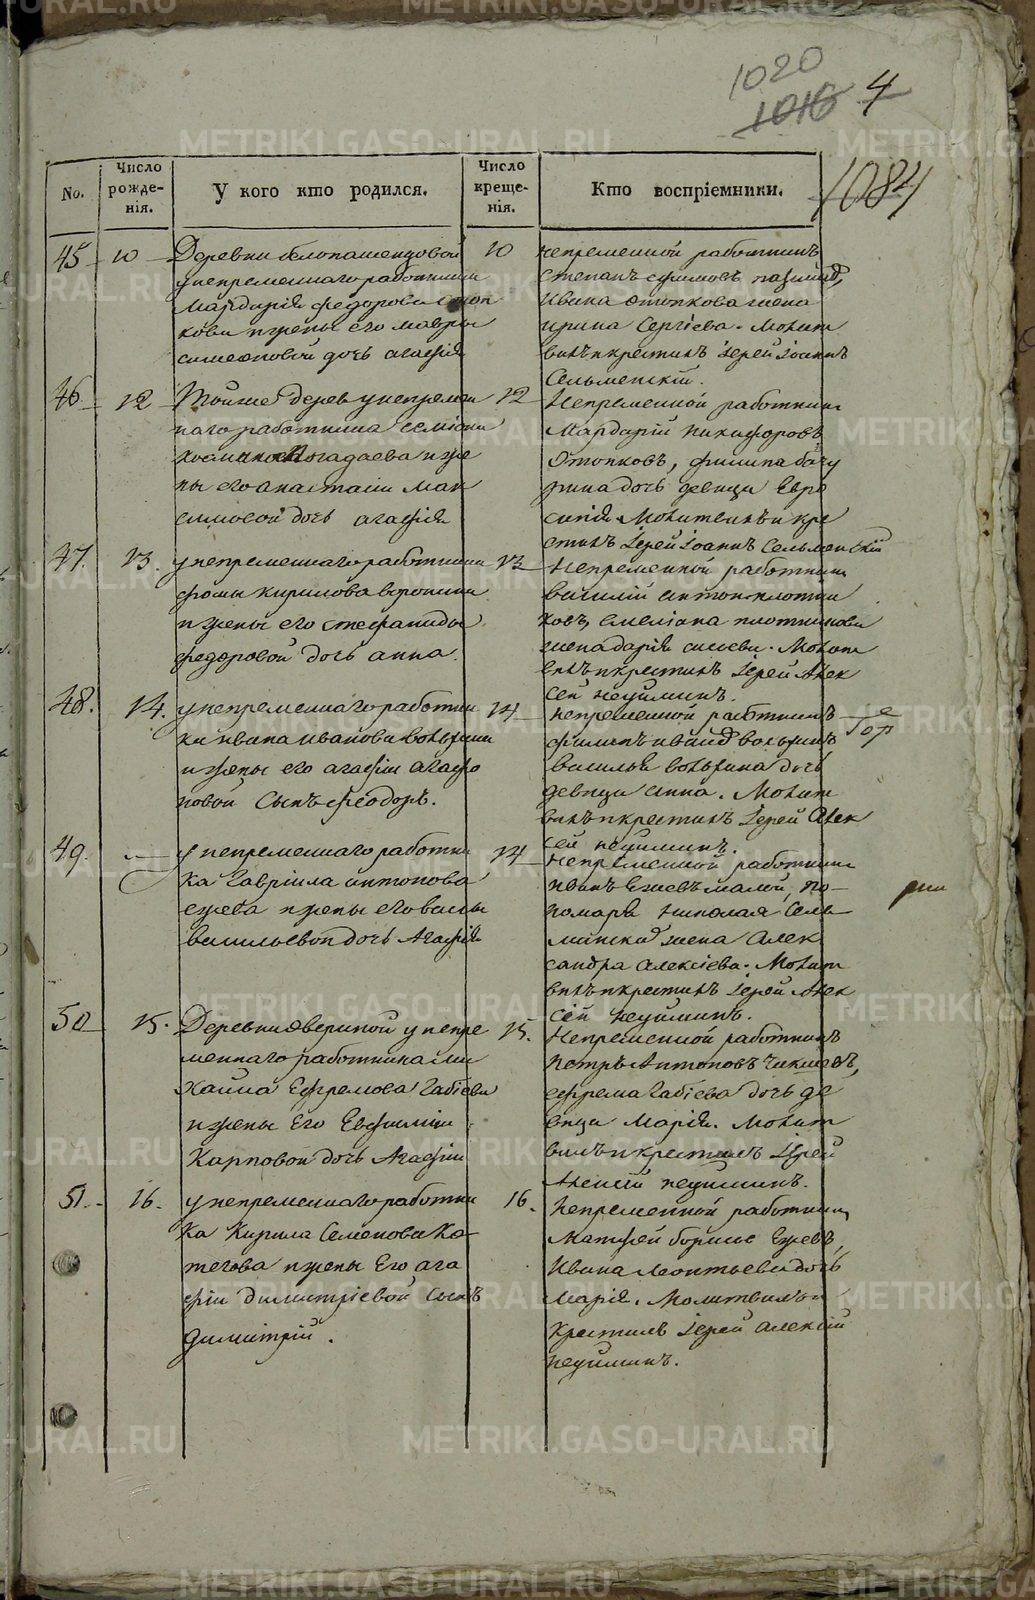 1020
1016 4
1084
No.
Число рожденія.
У кого кто родился.
Число крещенія.
Кто воспріемники.
45 10
Деревни белопашенцовой
у непременнаго работника
Мардарія Федорова
кова и жены его мавры
симеоновой дочь агафія
10
непременной работникъ
степанъ ефимовъ
Ивана отопкова жена
ирина Сергіева. Молит
вилъ и крестилъ Іерей Іоаннъ
Сельменскій.
46 12
Тойже дерев у непремен
наго работника
и же
ны его анастасіи мак
симовой дочь агафія
12
Непременной работникъ
Мардарій никифоровъ
Отопковъ, филипа
рина дочь девица Евро
синія Молитвилъ и кре
стилъ Іерей Іоаннъ Сельменскій
47. 13.
у непременнаго работника
фомы кирилова воронина
и жены его стефаниды
федоровой дочь анна.
13
Непременной работникъ
василій антон плотни
ковъ, емеліана плотникова
жена дарія Молит
вилъ и крестилъ Іерей Алек
сей неуйминъ.
48. 14.
у непременнаго работни
ка ивана иванова
и жены его агафіи агафо
новой Сынъ феодоръ.
14
непременной работникъ
филипъ иванов
василья дочь
девица анна. Молит
вилъ и крестилъ Іерей Алек
сей неуйминъ.
49.
у непременнаго работни
ка Гавріила антонова
ежева и жены его васы
васильевой дочь Агафія
14
непременной работникъ
иванъ Ежевъ малой, по-
номаря николая Сель
минска жена Алек
сандра алексіева. Молит
вилъ и крестилъ Іерей Алек
сій неуйминъ.
50 15.
Деревни Озвериной у непре
меннаго работника ми
хаила Ефремова Габіева
и жены Его Евфиміи
Карповой дочь Агафіи
15.
Непременной работникъ
петръ Антоновъ
ефрема Габіева дочь де
вица Марія. Молит
вилъ и крестилъ Іерей
Алексій неуйминъ.
51. 16.
у непременнаго работни
ка Кирила Семенова Ка
тегова и жены Его ага
фіи димитріевой сынъ
димитрій.
16.
Непременной работникъ
Матфей борисов Ежевъ,
Ивана леонтьева дочь
Марія. Молитвилъ и
Крестилъ Іерей алексій
неуйминъ.
METRIKI.GASO-URAL.RU